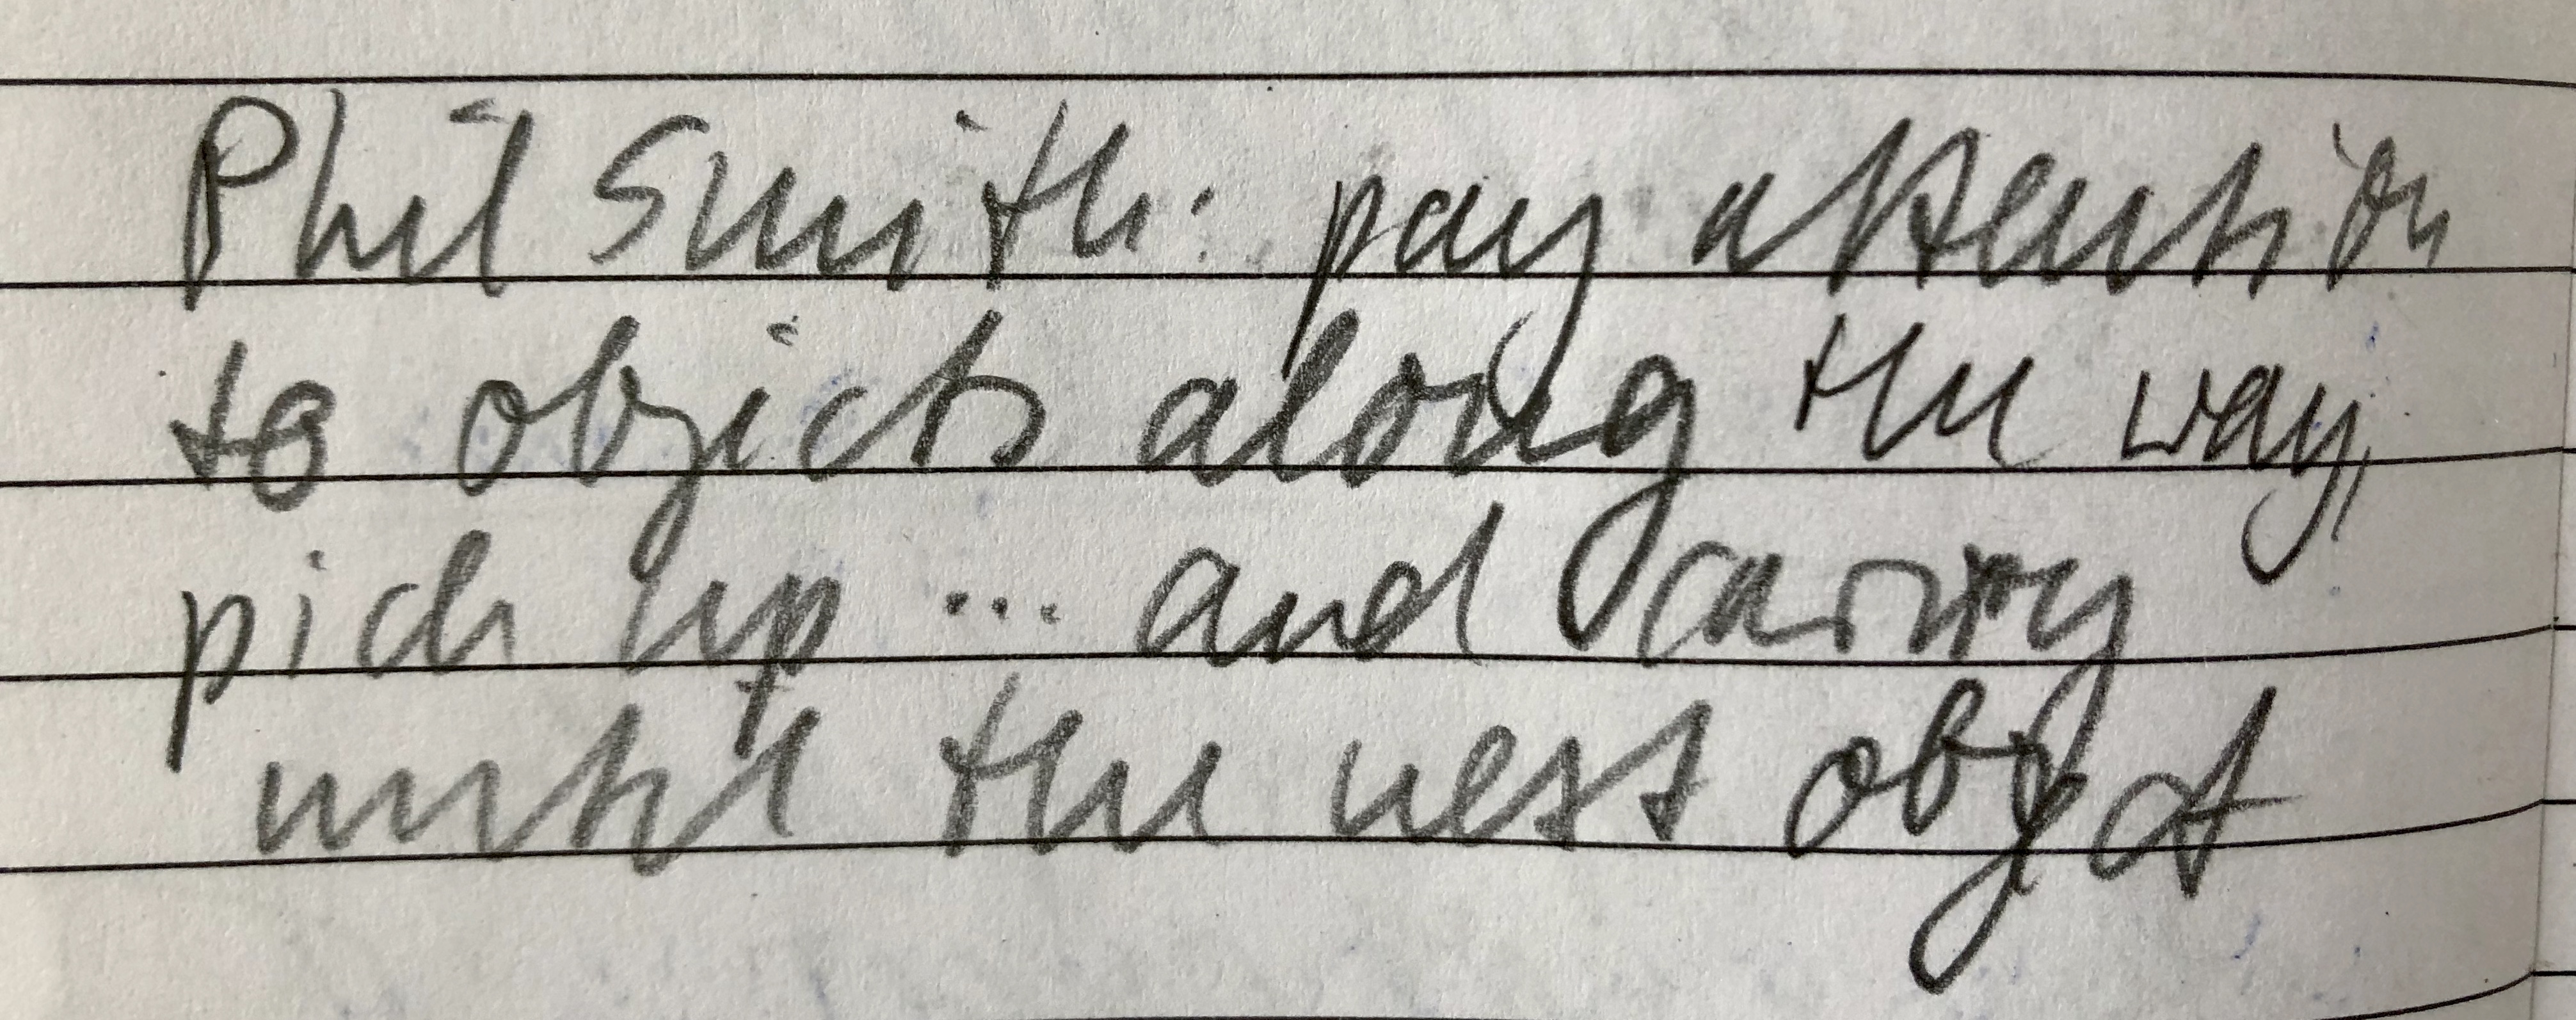 Phil Smith: pay attention
to objects along the way,
pick up ... and carry
until the next object